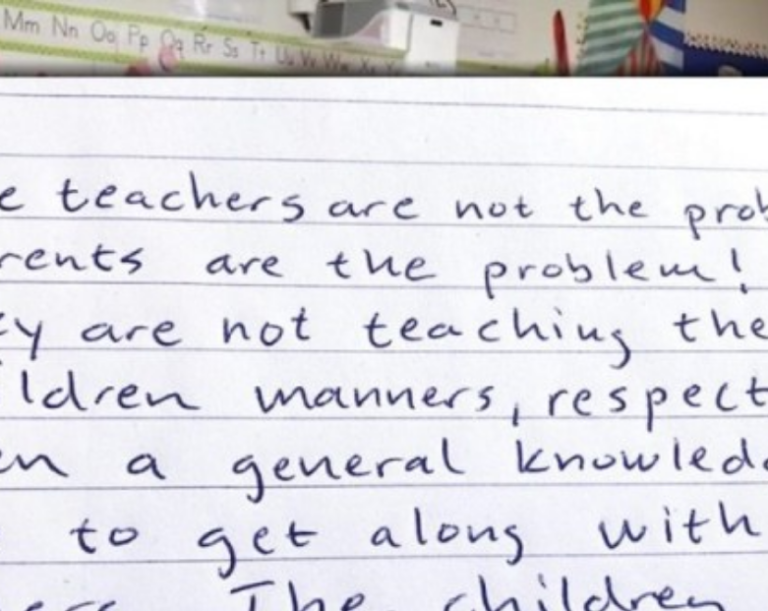 Mm Nn Oo Pp Qq Rr Ss Tt Uu Vv Ww Xx
teachers are not the
are the problem!
are not teaching
manners, respect
a general
to get along with
The children